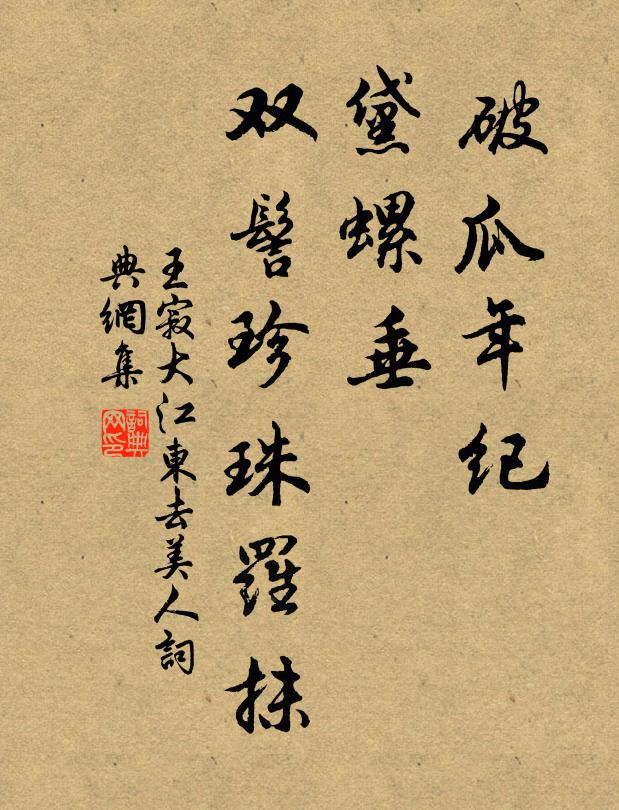 破瓜年纪
黛螺垂
双髻珍珠羅抹
王寂大江東去美人詞
典網集
詞典网印